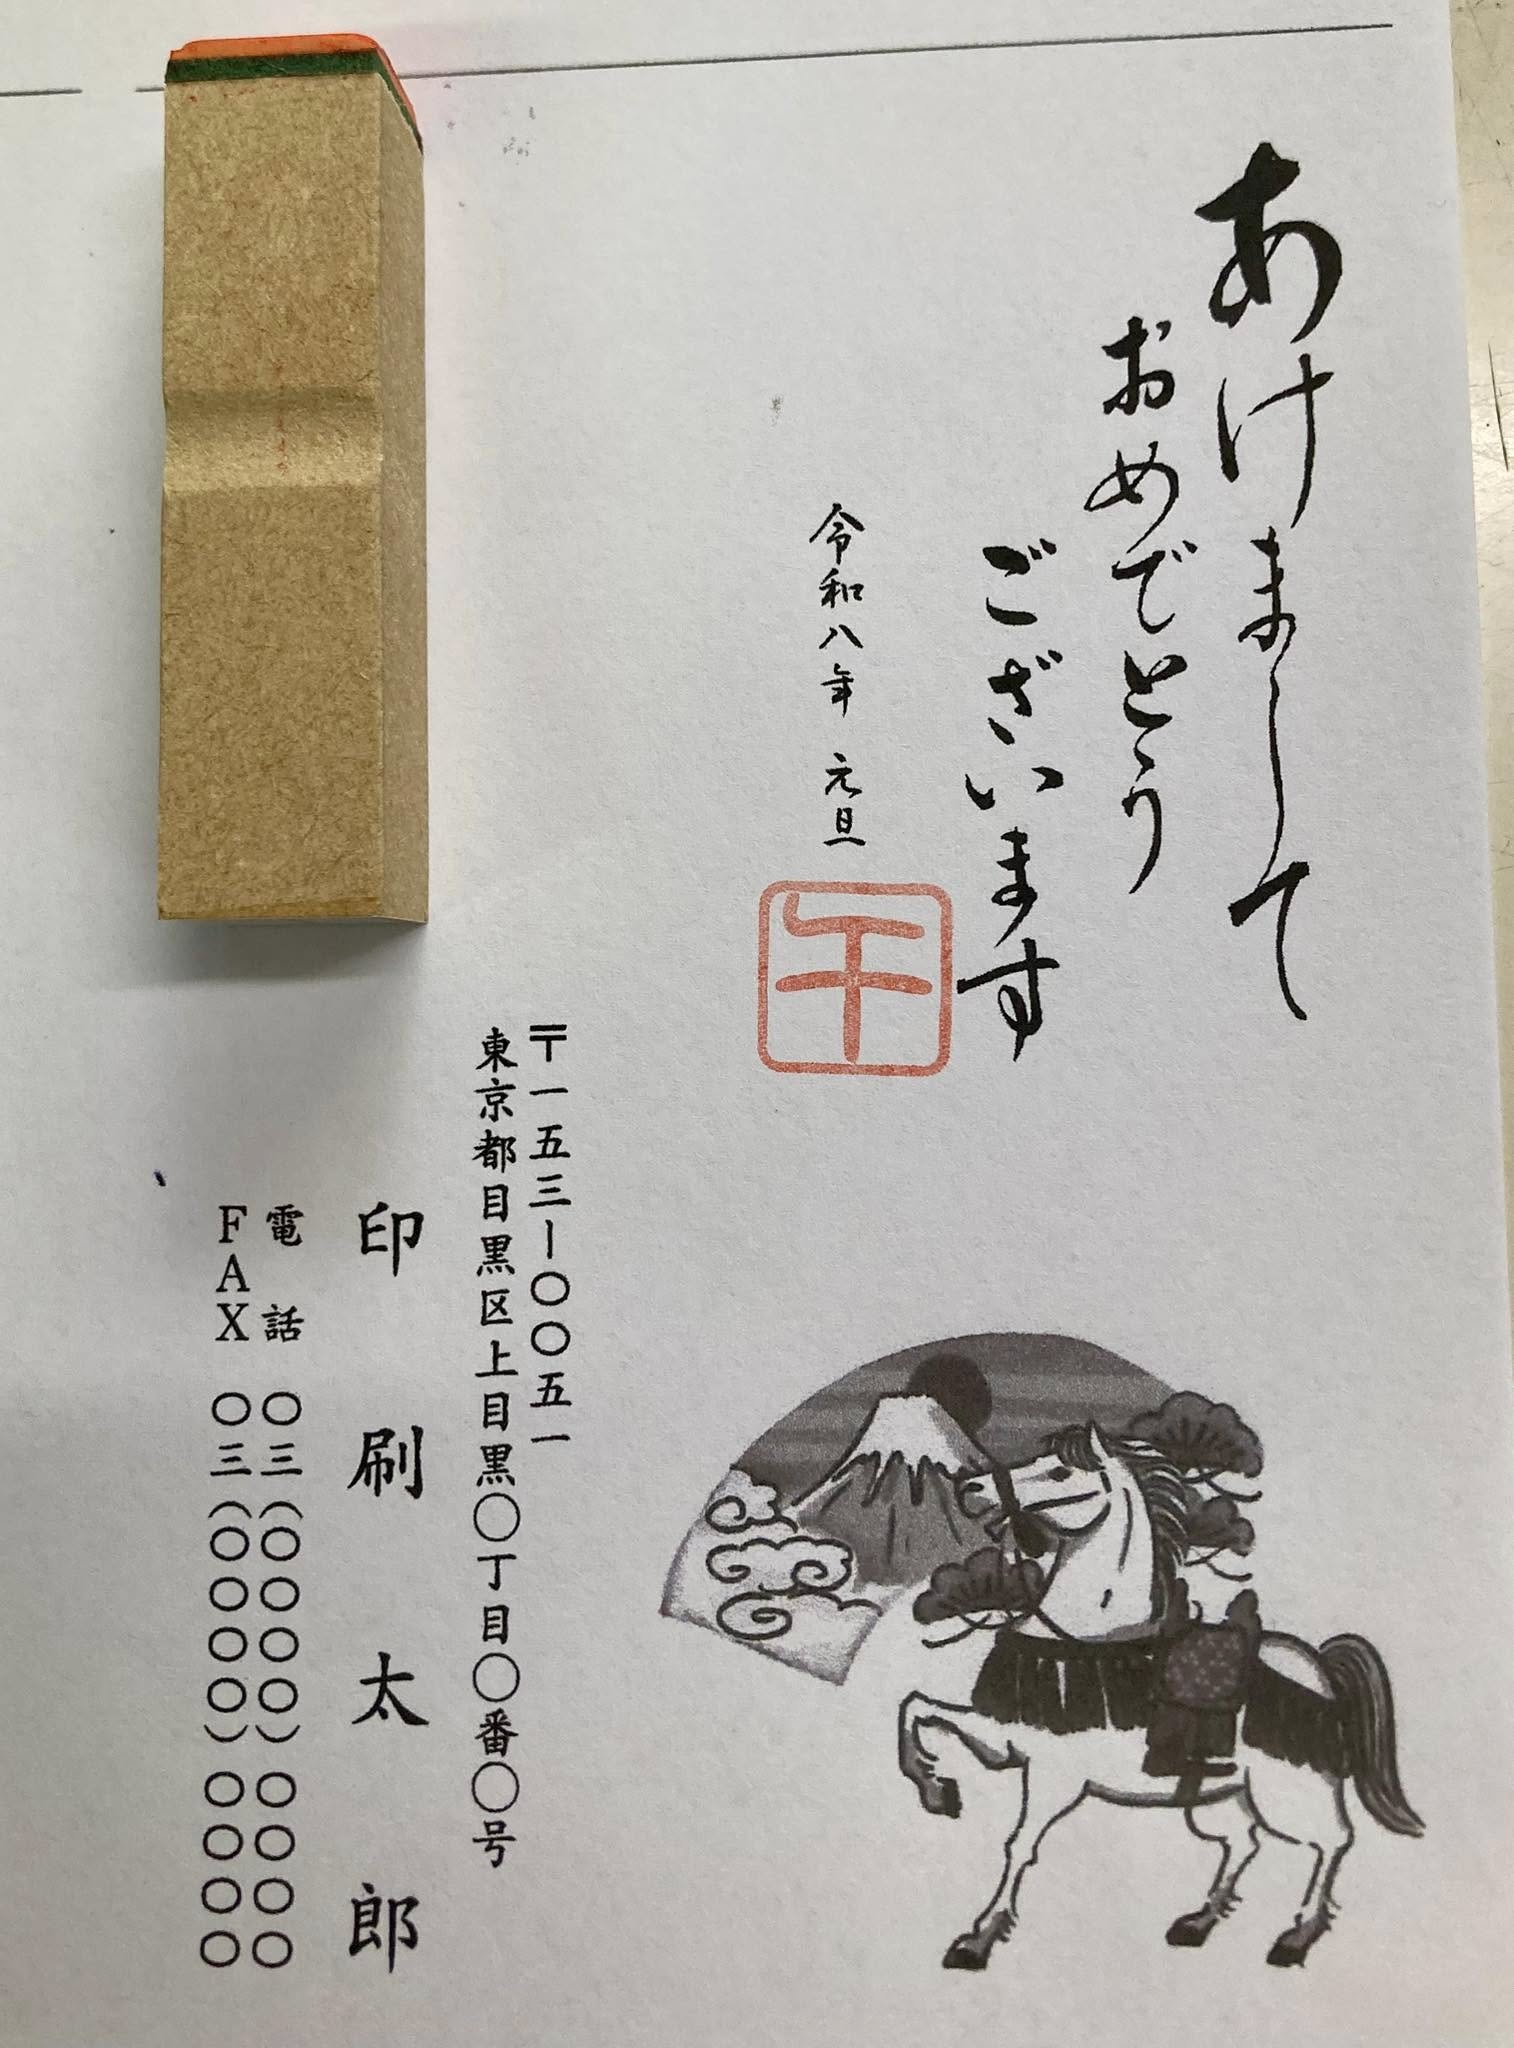 あけまして
おめでとう
ございます
令和八年 元旦
午
〒一五三ー〇〇五一
東京都目黒区上目黒〇丁目〇番〇号
印刷太郎
電話 〇三(〇〇〇〇)〇〇〇〇
FAX 〇三(〇〇〇〇)〇〇〇〇